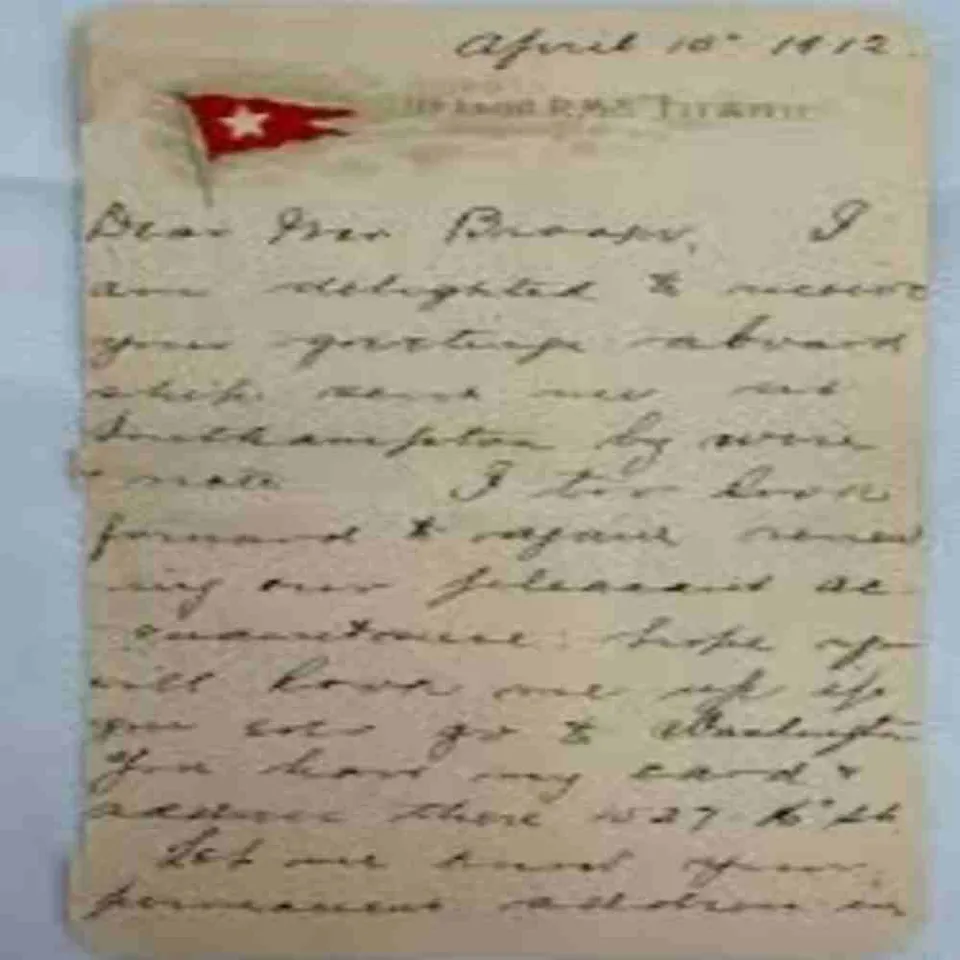 April 10" 1912.
On board R.M.S. "Titanic"
Dear Mr. I
am delighted to receive
your greetings aboard
ship sent me at
Southampton by wire
& note I too look
forward to again renew
ing our pleasant ac
quaintance. hope you
will look me up if
you ever go to Washington
You have my card &
address there 1527 16" St.
Let me know your
permanent address in